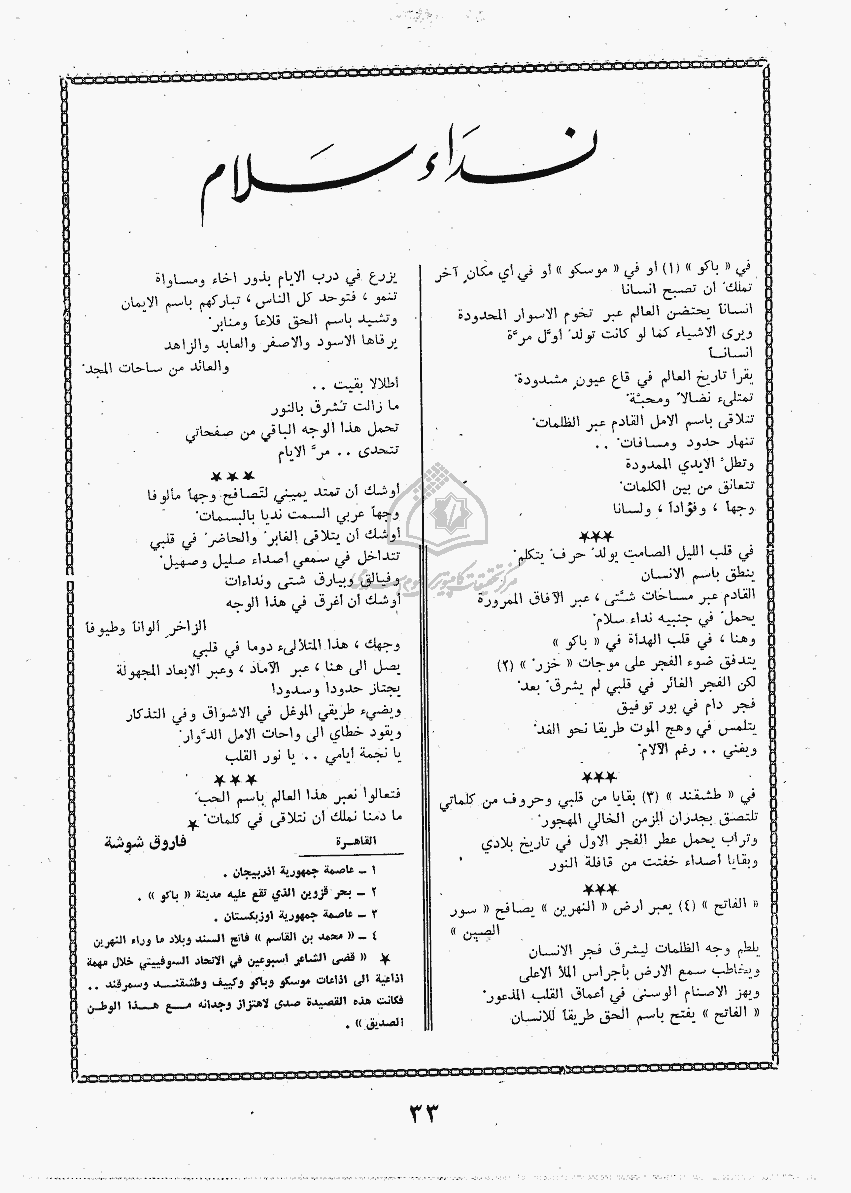 نداء سلام
في « باكو » (١) أو في « موسكو » أو في أي مكان آخر
تملك ان تصبح انسانا
انساناً يحتضن العالم عبر تخوم الاسوار المحدودة
ويرى الاشياء كما لو كانت تولد أوَّل مرَّة
انسانــاً
يقرأ تاريخ العالم في قاع عيون مشدودة
تمتلىء نضالاً ومحبَّة
تتلاقى باسم الامل القادم عبر الظلمات
تنهار حدود ومسافات ..
وتطل الايدي الممدودة
تتعانق من بين الكلمات
وجهاً ، وفؤاداً ، ولسانا
★★★
في قلب الليل الصامت يولد حرف يتكلم
ينطق باسم الانسان
القادم عبر مساحات شتَّى ، عبر الآفاق المرورة
يحمل في جنبيه نداء سلام
وهنا ، في قلب الهدأة في « باكو »
يتدفق ضوء الفجر على موجات « خزر » (٢)
لكن الفجر الغائر في قلبي لم يشرق بعد
فجر دام في بور توفيق
يتلمس في وهج الموت طريقا نحو الغد
ويغني .. رغم الآلام
★★★
في « طشقند » (٣) بقايا من قلبي وحروف من كلماتي
تلتصق بجدران الزمن الخالي المهجور
وتراب يحمل عطر الفجر الاول في تاريخ بلادي
وبقايا أصداء خفتت من قافلة النور
★★★
« الفاتح » (٤) يعبر ارض « النهرين » يصافح « سور
الصين »
يلطم وجه الظلمات ليشرق فجر الانسان
ويخاطب سمع الارض بأجراس الملأ الاعلى
ويهز الاصنام الوسنى في أعماق القلب المذعور
« الفاتح » يفتح باسم الحق طريقاً للانسان
يزرع في درب الايام بذور اخاء ومساواة
تنمو ، فتوحد كل الناس ، تباركهم باسم الايمان
وتشيد باسم الحق قلاعاً ومنابر
يرقاها الاسود والاصفر والعابد والزاهد
والعائد من ساحات المجد
أطلالا بقيت ..
ما زالت تشرق بالنور
تحمل هذا الوجه الباقي من صفحاتي
تتحدى .. مرَّ الايام
★ ★ ★
أوشك أن تمتد يميني لتصافح وجهاً مألوفا
وجهاً عربي السمت نديا بالبسمات
أوشك أن يتلاقى الغابر والحاضر في قلبي
تتداخل في سمعي أصداء صليل وصهيل
وفيالق وبيارق شتى ونداءات
أوشك أن أغرق في هذا الوجه
الزاخر ألواناً وطيوفاً
وجهك ، هذا المتلالىء دوما في قلبي
يصل الى هنا ، عبر الآماد ، وعبر الابعاد المجهولة
يجتاز حدوداً وسدودا
ويضيء طريقي الموغل في الاشواق وفي التذكار
ويقود خطاي الى واحات الامل الدوَّار
يا نجمة أيامي .. يا نور القلب
★ ★ ★
فتعالوا نعبر هذا العالم باسم الحب
ما دمنا نملك أن نتلاقى في كلمات ★
القاهرة فاروق شوشة
١ ــ عاصمة جمهورية اذربيجان .
٢ ــ بحر قزوين الذي تقع عليه مدينة « باكو » .
٣ ــ عاصمة جمهورية اوزبكستان .
٤ ــ « محمد بن القاسم » فاتح السند وبلاد ما وراء النهرين
★ « قضى الشاعر اسبوعين في الاتحاد السوفييتي خلال مهمة
اذاعية الى اذاعات موسكو وباكو وكييف وطشقنــد وسمرقند ..
فكانت هذه القصيدة صدى لاهتزاز وجدانه مــع هــذا الوطــن
الصديق » .
٣٣